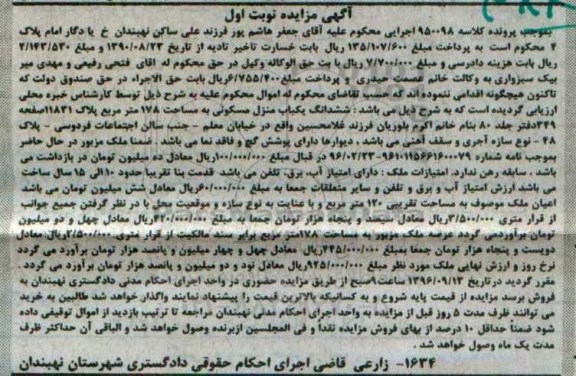 آگهی مزایده نوبت اول
بموجب پرونده کلاسه ۹۵۰۰۹۸ اجرایی محکوم علیه آقای جعفر هاشم پور فرزند علی ساکن نهبندان خ یادگار امام پلاک
۴ محکوم است به پرداخت مبلغ ۱۳۵/۱۰۷/۶۰۰ ریال بابت خسارت تاخیر تادیه از تاریخ ۱۳۹۰/۰۸/۲۳ و مبلغ ۲/۱۴۳/۵۳۰
ریال بابت هزینه دادرسی و مبلغ ۷/۷۰۰/۰۰۰ ریال با بت حق الوکاله وکیل در حق محکوم له آقای فتحی رفیعی و مهدی میر
بیک سبزواری به وکالت خانم عصمت حیدری و پرداخت مبلغ ۶/۷۵۵/۴۰۰ریال بابت حق الاجراء در حق صندوق دولت که
تاکنون هیچگونه اقدامی ننموده اند که حسب تقاضای محکوم له اموال محکوم علیه به شرح ذیل توسط کارشناس خبره محلی
ارزیابی گردیده است که به شرح ذیل می باشد : ششدانگ یکباب منزل مسکونی به مساحت ۱۷۸ متر مربع پلاک ۱۱۸۳۱صفحه
۳۴۹دفتر جلد ۸۰ بنام خانم اکرم بلوریان فرزند غلامحسین واقع در خیابان معلم - جنب سالن اجتماعات فردوسی - پلاک
۴۸ - نوع سازه آجری و سقف آهنی می باشد . دیوارها دارای پوشش گچ و فاقد نما می باشد . ضمنا ملک مزبور در حال حاضر
بموجب نامه شماره ۹۶۱۰۱۱۵۶۶۱۶۰۰۰۷۹-۹۶/۰۲/۲۳ در قبال مبلغ ۱۰۰/۰۰۰/۰۰۰ریال معادل ده میلیون تومان در بازداشت می
باشد . سابقه رهن ندارد. امتیازات ملک : دارای امتیاز آب، برق، تلفن می باشد. قدمت بنا تقریبا حدود ۱۰ الی ۱۵ سال ساخت
می باشد ارزش امتیاز آب و برق و تلفن و سایر متعلقات جمعا به مبلغ ۶۰/۰۰۰/۰۰۰ریال معادل شش میلیون تومان می باشد
اعیان ملک موصوف به مساحت تقریبی ۱۲۰ متر مربع و با عنایت به نوع سازه و موقعیت محل با در نظر گرفتن جمیع جوانب
از قرار متری ۳/۵۰۰/۰۰۰ریال معادل سیصد و پنجاه هزار تومان جمعا به مبلغ ۴۲۰/۰۰۰/۰۰۰ریال معادل چهل و دو میلیون
تومان برآوردمی گردد عرصه ملک مزبور به مساحت ۱۷۸متر مربع برابر سند مالکیت از قرار متری ۲/۵۰۰/۰۰۰ریال معادل
دویست و پنجاه هزار تومان جمعا بمبلغ ۴۴۵/۰۰۰/۰۰۰ریال معادل چهل و چهار میلیون و پانصد هزار تومان برآورد می گردد
نرخ روز و ارزش نهایی ملک مورد نظر مبلغ ۹۲۵/۰۰۰/۰۰۰ریال معادل نود و دو میلیون و پانصد هزار تومان برآورد می گردد .
مقرر گردید در تاریخ ۱۳۹۶/۰۹/۱۳ ساعت۹صبح از طریق مزایده حضوری در واحد اجرای احکام مدنی دادگستری نهبندان به
فروش برسد مزایده از قیمت پایه شروع و به کسانیکه بالاترین قیمت را پیشنهاد نمایند واگذار خواهد شد طالبین به خرید
می توانند ظرف مدت ۵ روز قبل از مزایده به واحد اجرای احکام مدنی نهبندان مراجعه تا ترتیب بازدید از اموال توقیفی داده
شود ضمناً حداقل ۱۰ درصد از بهای فروش مزایده نقداً و فی المجلسین ازبرنده وصول خواهد شد و الباقی آن حداکثر ظرف
مدت یک ماه وصول خواهد شد .
۱۶۳۴- زارعی قاضی اجرای احکام حقوقی دادگستری شهرستان نهبندان